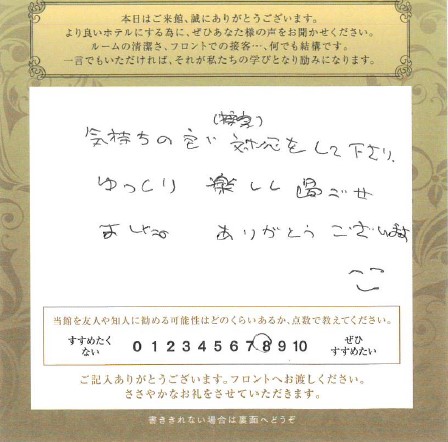 本日はご来館、誠にありがとうございます。
より良いホテルにする為に、ぜひあなた様の声をお聞かせください。
ルームの清潔さ、フロントでの接客…、何でも結構です。
一言でもいただければ、それが私たちの学びとなり励みになります。
(接客)
気持ちの 対応をして下さり、
ゆっくり 楽しく 過ごせ
ました。 ありがとう ございます
当館を友人や知人に勧める可能性はどのくらいあるか、点数で教えてください。
すすめたくない 0 1 2 3 4 5 6 7 8 9 10 ぜひすすめたい
ご記入ありがとうございます。フロントへお渡しください。
ささやかなお礼をさせていただきます。
書ききれない場合は裏面へどうぞ